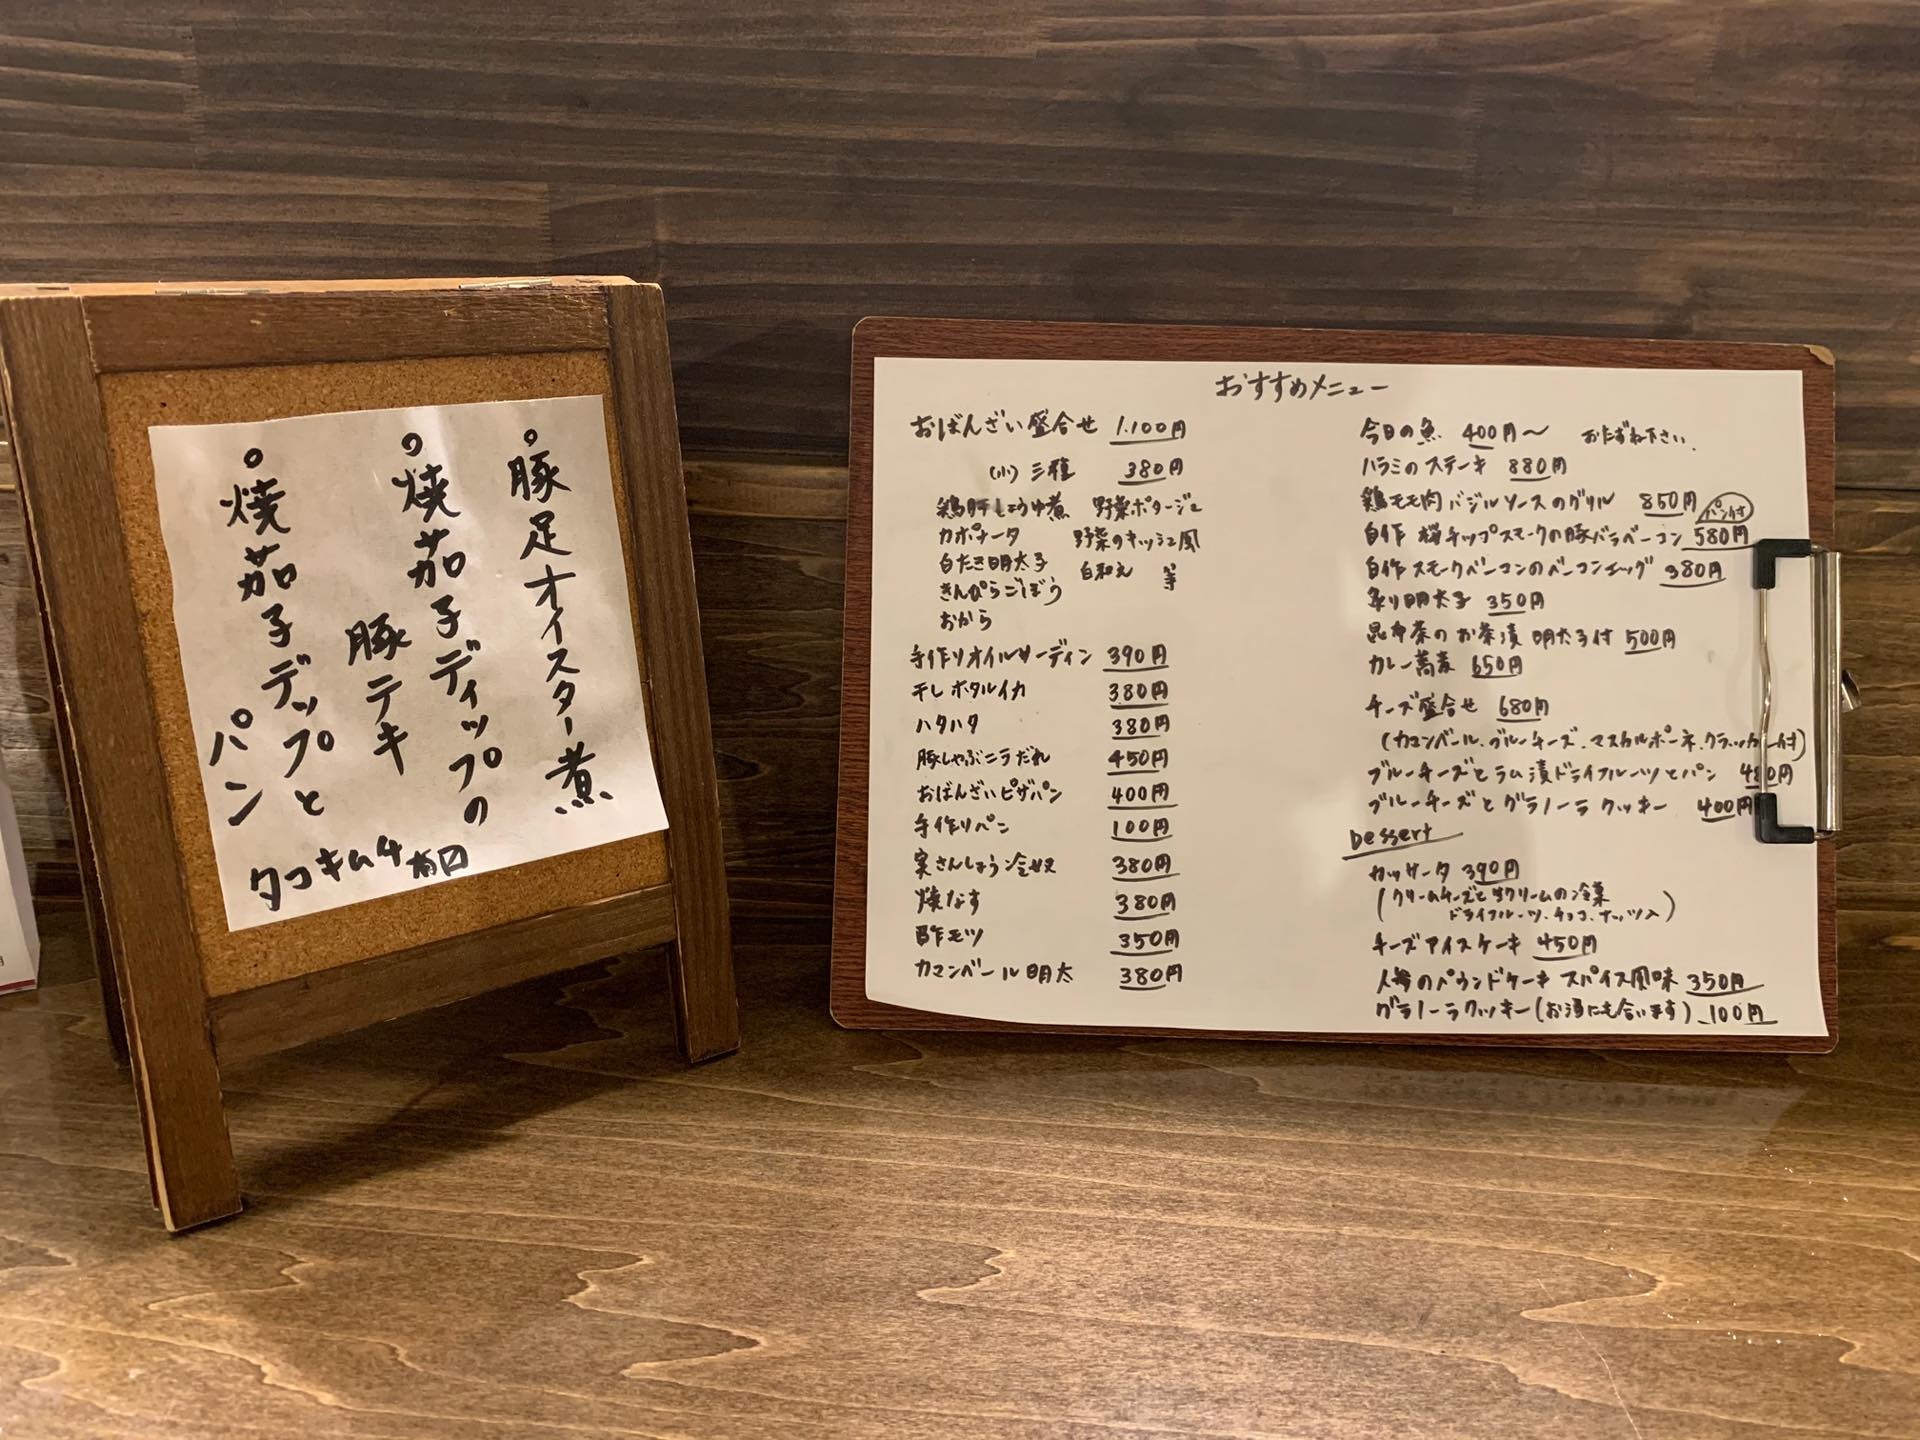 豚足オイスター煮
焼茄子ディップの
豚テキ
焼茄子デップと
パン
タコキムチ
おすすめメニュー
おばんざい盛合せ 1.100円
(小) 三種 380円
鶏肝しょうゆ煮 野菜ポタージュ
カポナータ 野菜のキッシュ風
白たき明太子 白和え 等
きんぴらごぼう
おから
手作りオイルサーディン 390円
干しホタルイカ 380円
ハタハタ 380円
豚しゃぶニラだれ 450円
おばんざいピザパン 400円
手作りパン 100円
実さんしょう冷奴 380円
焼なす 380円
酢モツ 350円
カマンベール明太 380円
今日の魚 400円〜 おたずね下さい
ハラミのステーキ 880円
鶏モモ肉バジルソースのグリル 850円 パン付
自作 桜チップスモークの豚バラベーコン 580円
自作スモークベーコンのベーコンエッグ 380円
炙り明太子 350円
昆布茶のお茶漬 明太子付 500円
カレー蕎麦 650円
チーズ盛合せ 680円
(カマンベール、ブルーチーズ、マスカルポーネ、クラッカー付)
ブルーチーズとラム漬ドライフルーツとパン 480円
ブルーチーズとグラノーラクッキー 400円
Dessert
カッサータ 390円
(クリームチーズと生クリームの冷菓
ドライフルーツ、チョコ、ナッツ入)
チーズアイスケーキ 450円
人参のパウンドケーキ スパイス風味 350円
グラノーラクッキー(お酒にも合います) 100円